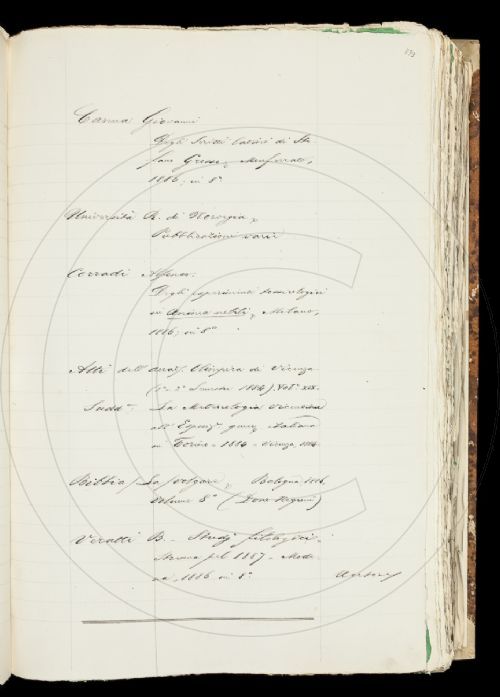 Canna Giovanni
Degli Scritti latini di Ste
fano Grosso, Monferrato,
1886, in 8°
Università R. di
Pubblicazioni varie
Corradi Alfonso:
Degli esperimenti tossicologici
in anima nobili, Milano,
1886, in 8°
Atti dell' Accad. Olimpica di Vicenza
(1° 2° Semestre 1884) Vol° XIX.
Sudd°: La Meteorologia Vicentina
all' Esposiz. gener. italiana
in Torino - 1884 - Vicenza, 1884.
Bibbia /La volgare, Bologna 1886,
Volume 8° (Dono Negroni)
Veratti B. - Studj filologici.
Strenna pel 1887 - Mode
na, 1886 in 8°